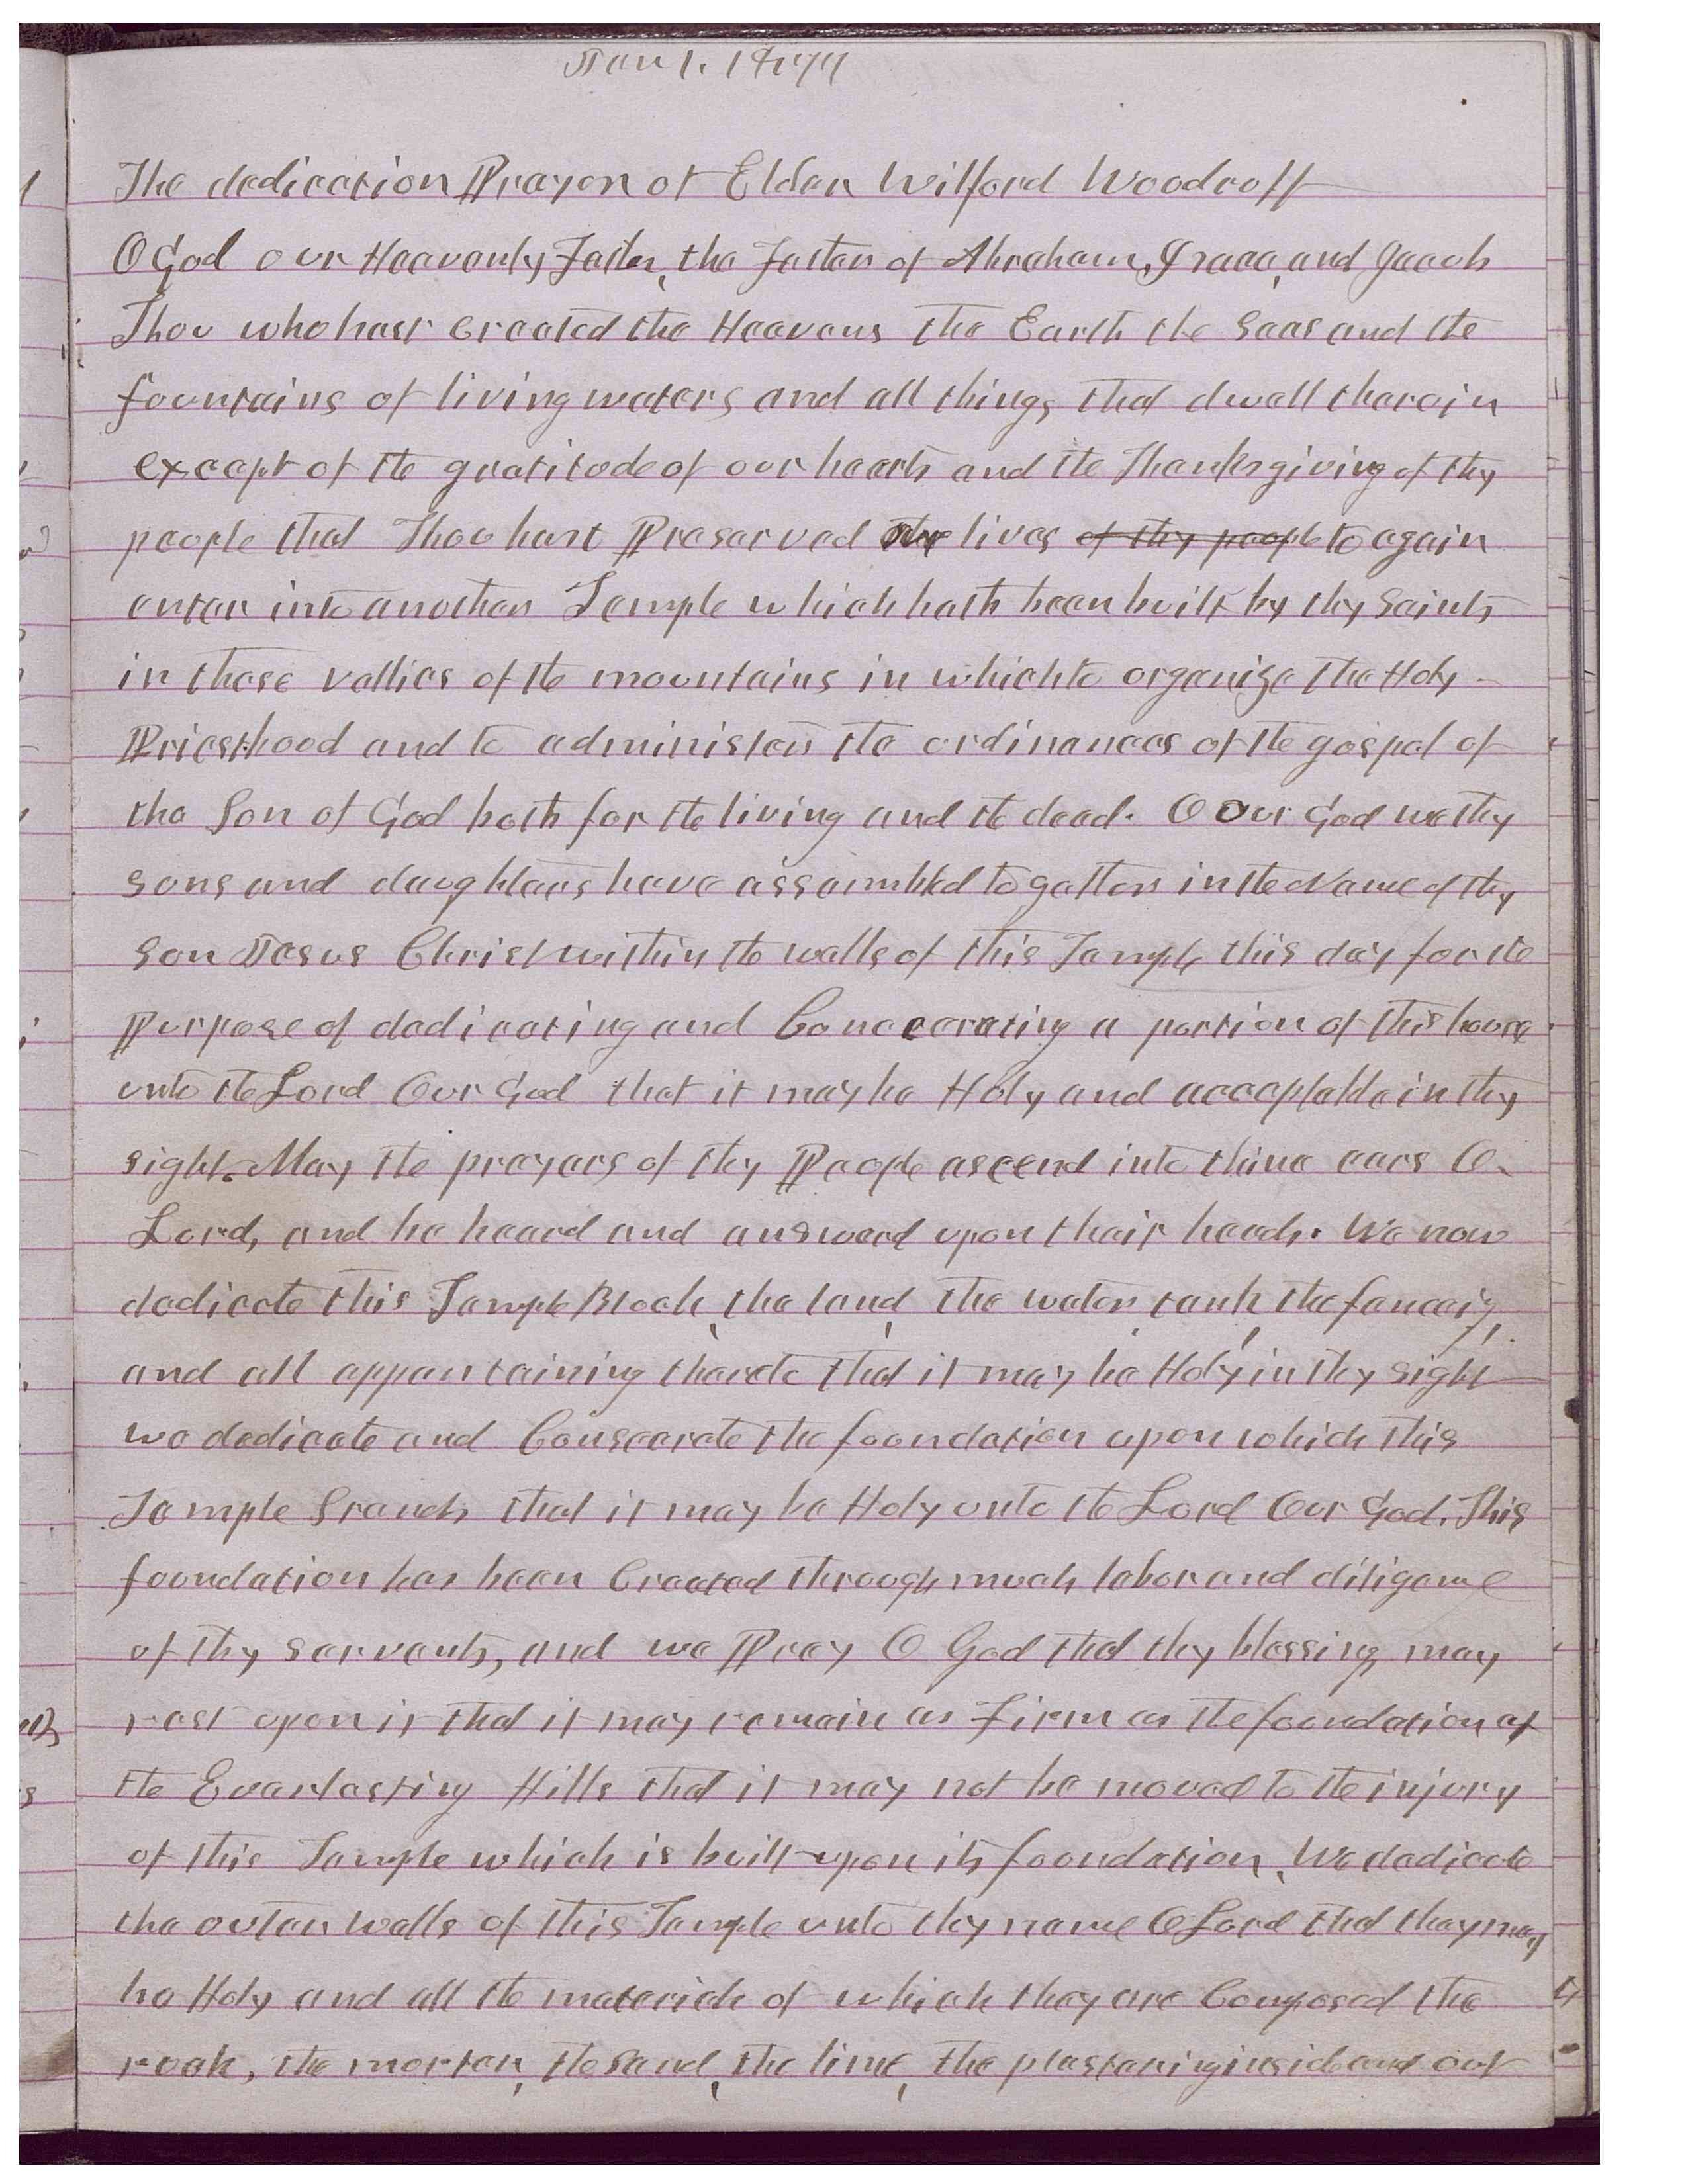 Jan 1. 1877
The dedication Prayer of Elder Wilford Woodroff
O God our Heavenly Father, the Father of Abraham, Isaac, and Jacob
Thou who hast Created the Heavens the Earth the Seas and the
fountains of living waters and all things that dwell therein
except of the gratitude of our hearts and the Thanksgiving of thy
people that Thou hast Preserved our lives of thy people to again
enter into another Temple which hath been built by thy Saints
in these vallies of the mountains in which to organize the Holy
Priesthood and to administer the ordinances of the gospel of
the Son of God both for the living and the dead. O Our God we thy
sons and daughters have assembled together in the Name of thy
son Jesus Christ within the walls of this Temple this day for the
Purpose of dedicating and Concecrating a portion of this house
unto the Lord Our God that it may be Holy and acceptable in thy
sight. May the prayers of thy People ascend into thine ears O
Lord, and be heard and answerd upon their heads. We now
dedicate this Temple Block, the land, the water, tank, the fenceig,
and all appertaining thereto that it may be Holy in thy sight
we dedicate and Consecrate the foundation upon which this
Temple Stands that it may be Holy unto the Lord Our God. This
foundation has been Created through much labor and diligence
of thy servants, and we Pray O God that thy blessing may
rest upon it that it may remain as firm as the foundation of
the Everlasting Hills that it may not be moved to the injury
of this Temple which is built upon its foundation, We dedicate
the outer walls of this Temple unto thy name O Lord that they may
be Holy and all the materials of which they are Composed the
rock, the morter, the Sand, the lime, the plastering inside and out